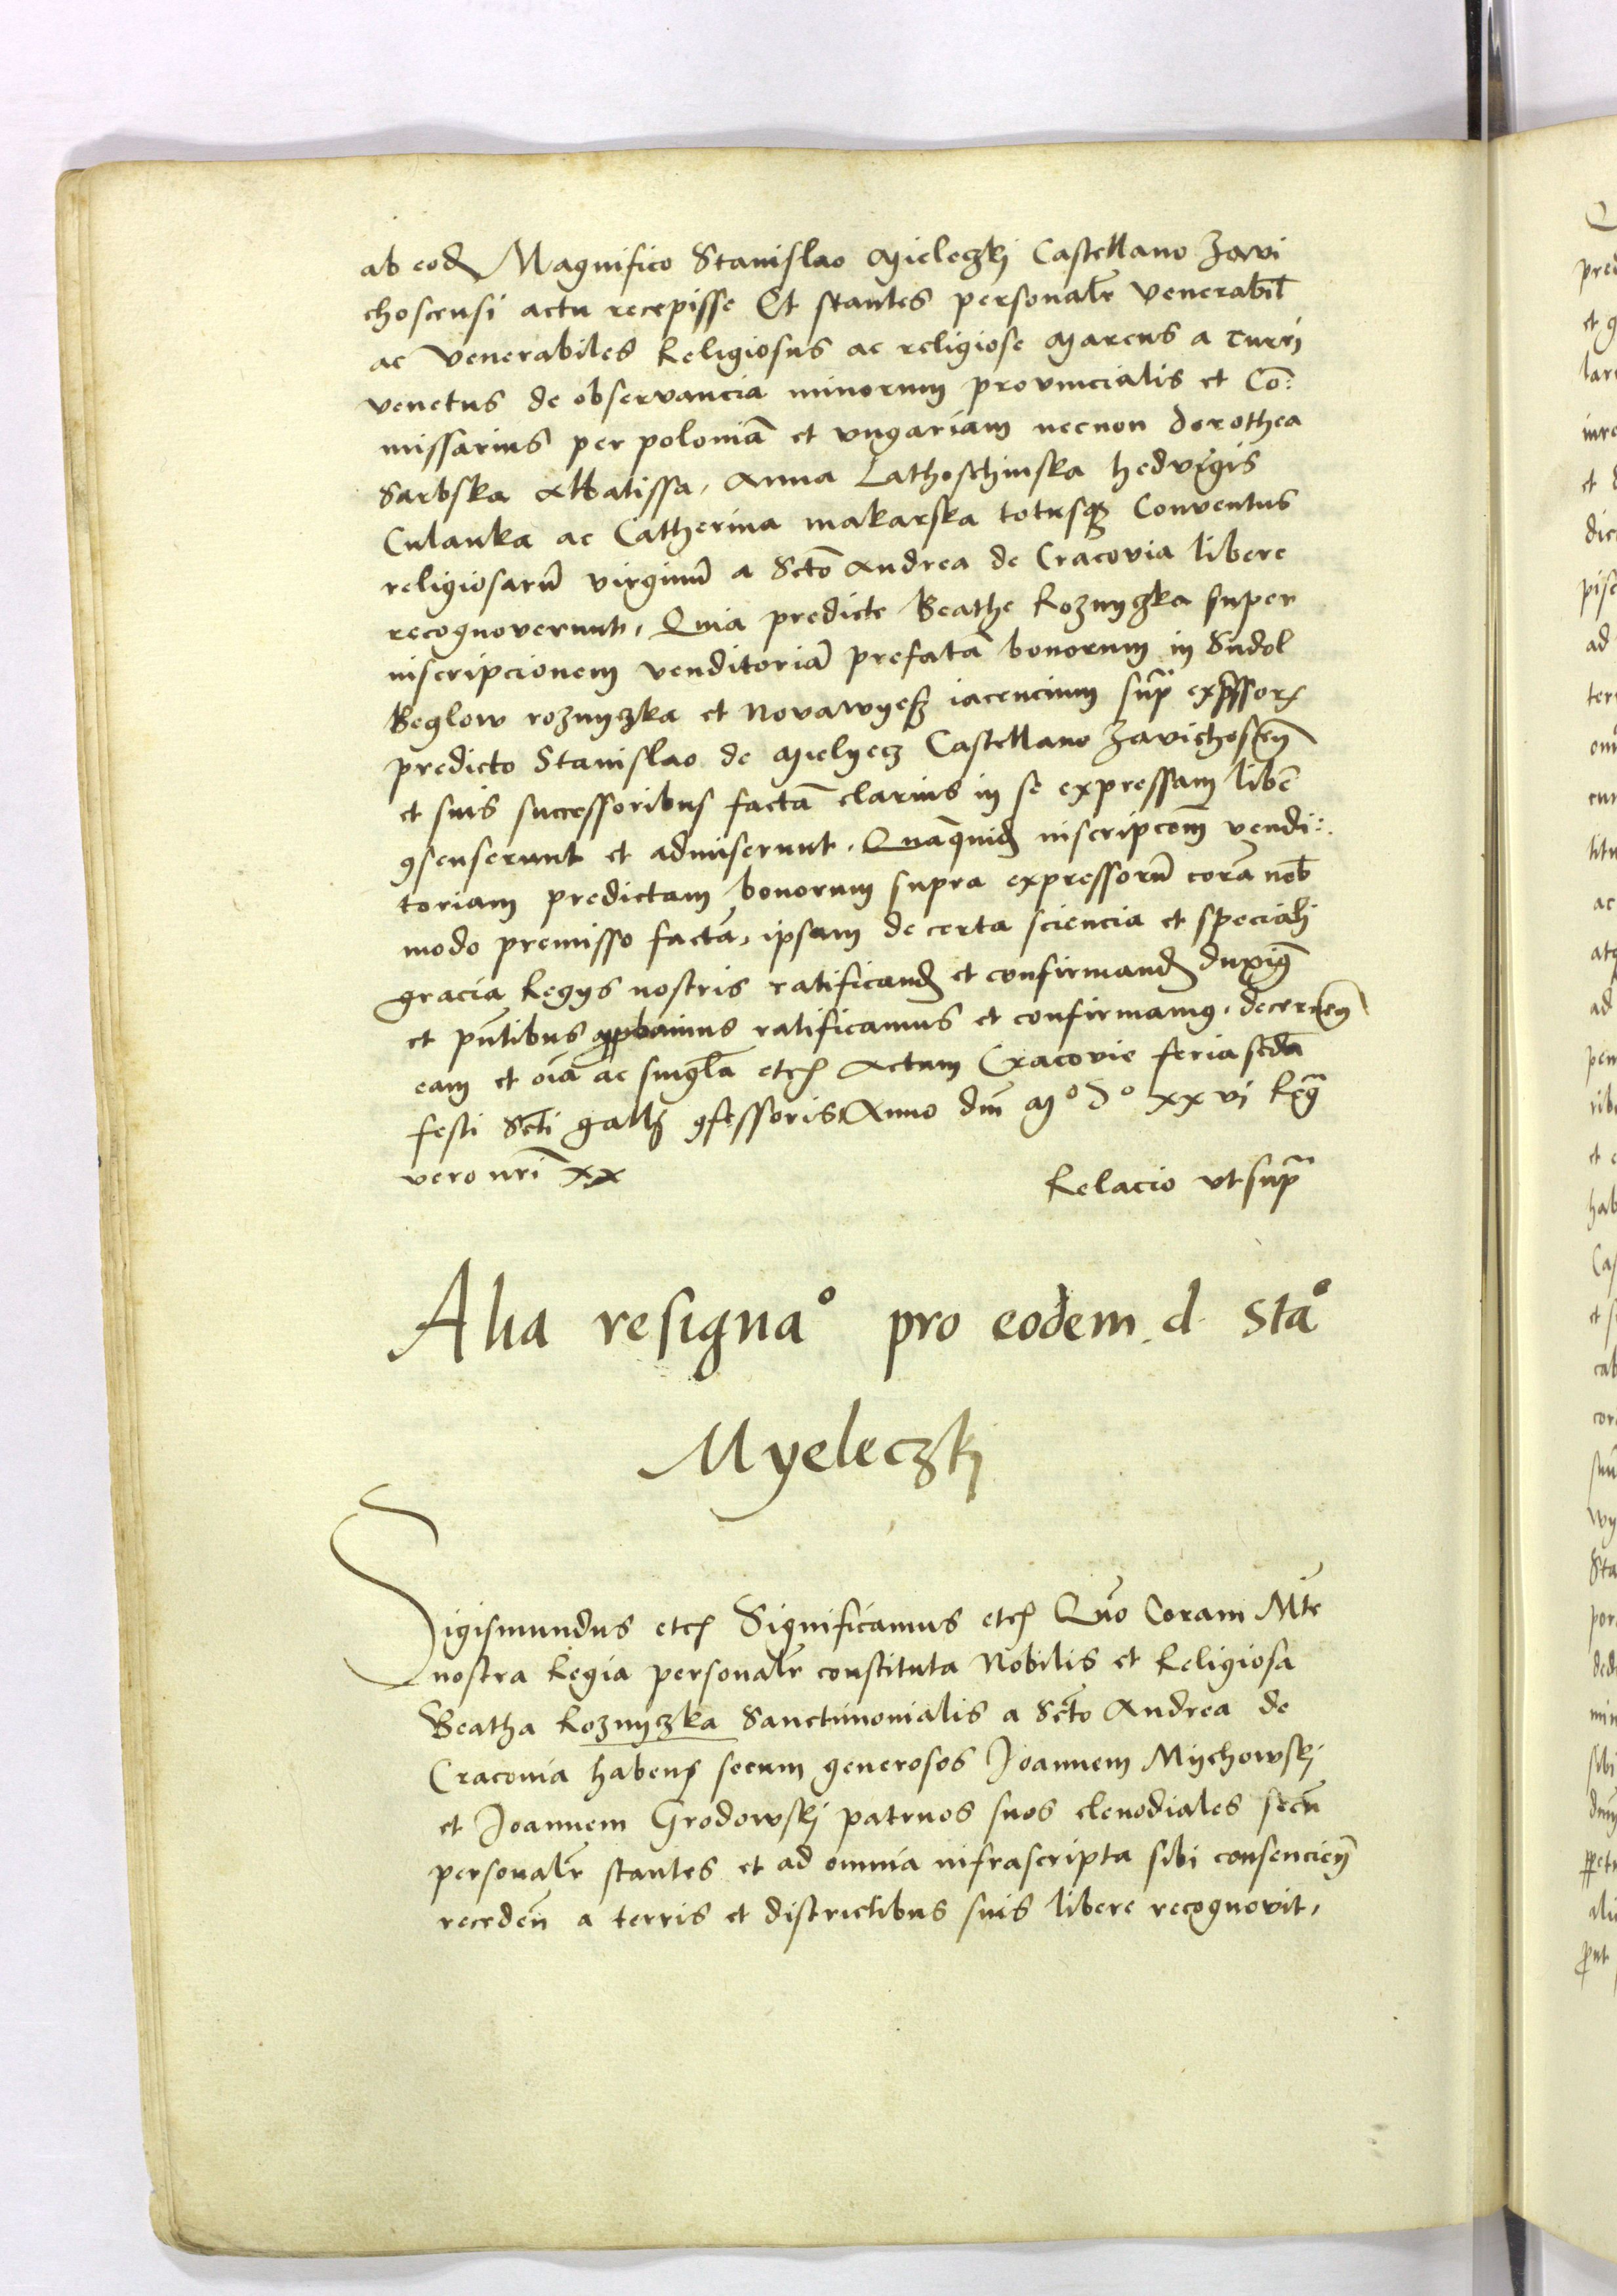 ab eod Magnifico Stanislao Mieleczkj Castellano Zavi
choscensi actu recepisse Et stantes personalr Venerabil
ac Venerabiles Religiosus ac religiose Marcus a Turrj
venetus de observancia minorum provincialis et Co=
missarius per poloniā et vngariam necnon dorothea
Sarbska Abbatissa, Anna Lathoschinska hedvigis
Culanka ac Catherina makarska totusqz Conventus
religiosarū virginū a Scto Andrea de Cracovia libere
recognoverunt, Quia predicte Beathe Roznyczka super
inscripcionem venditoriā prefatā bonorum in Sudol
Beglow roznyczka et Novawyesz iacencium supra expssor
predicto Stanislao de Mielyecz Castellano Zavichosten
et suis successoribus factā clarius in se expressam libē
ɔsenserunt et admiserunt. Quāquid inscripcom vendi=
toriam predictam bonorum supra expressorū corā nob
modo premisso factā, ipsam de certa sciencia et specialj
gracia Regys nostris ratificand et confirmand duxim
et pntibus appbamus ratificamus et confirmamus. decernen
eam et oia ac singla etc Actum Cracovie feria scda
festi Scti gallj ɔfessoris Anno dni Mo do xxvi Regn
vero nri xx
Relacio vt supra
Alia resignao pro eodem d. Stao
Myeleczkj
Sigismundus etc Significamus etc Quo Coram Mte
nostra Regia personalr constituta Nobilis et Religiosa
Beatha Roznyczka Sanctimonialis a Scto Andrea de
Cracovia habens secum generosos Joannem Mychowskj
et Joannem Grodowskj patruos suos clenodiales secu
personalr stantes et ad omnia infrascripta sibi consencien
receden a terris et districtibus suis libere recognovit,